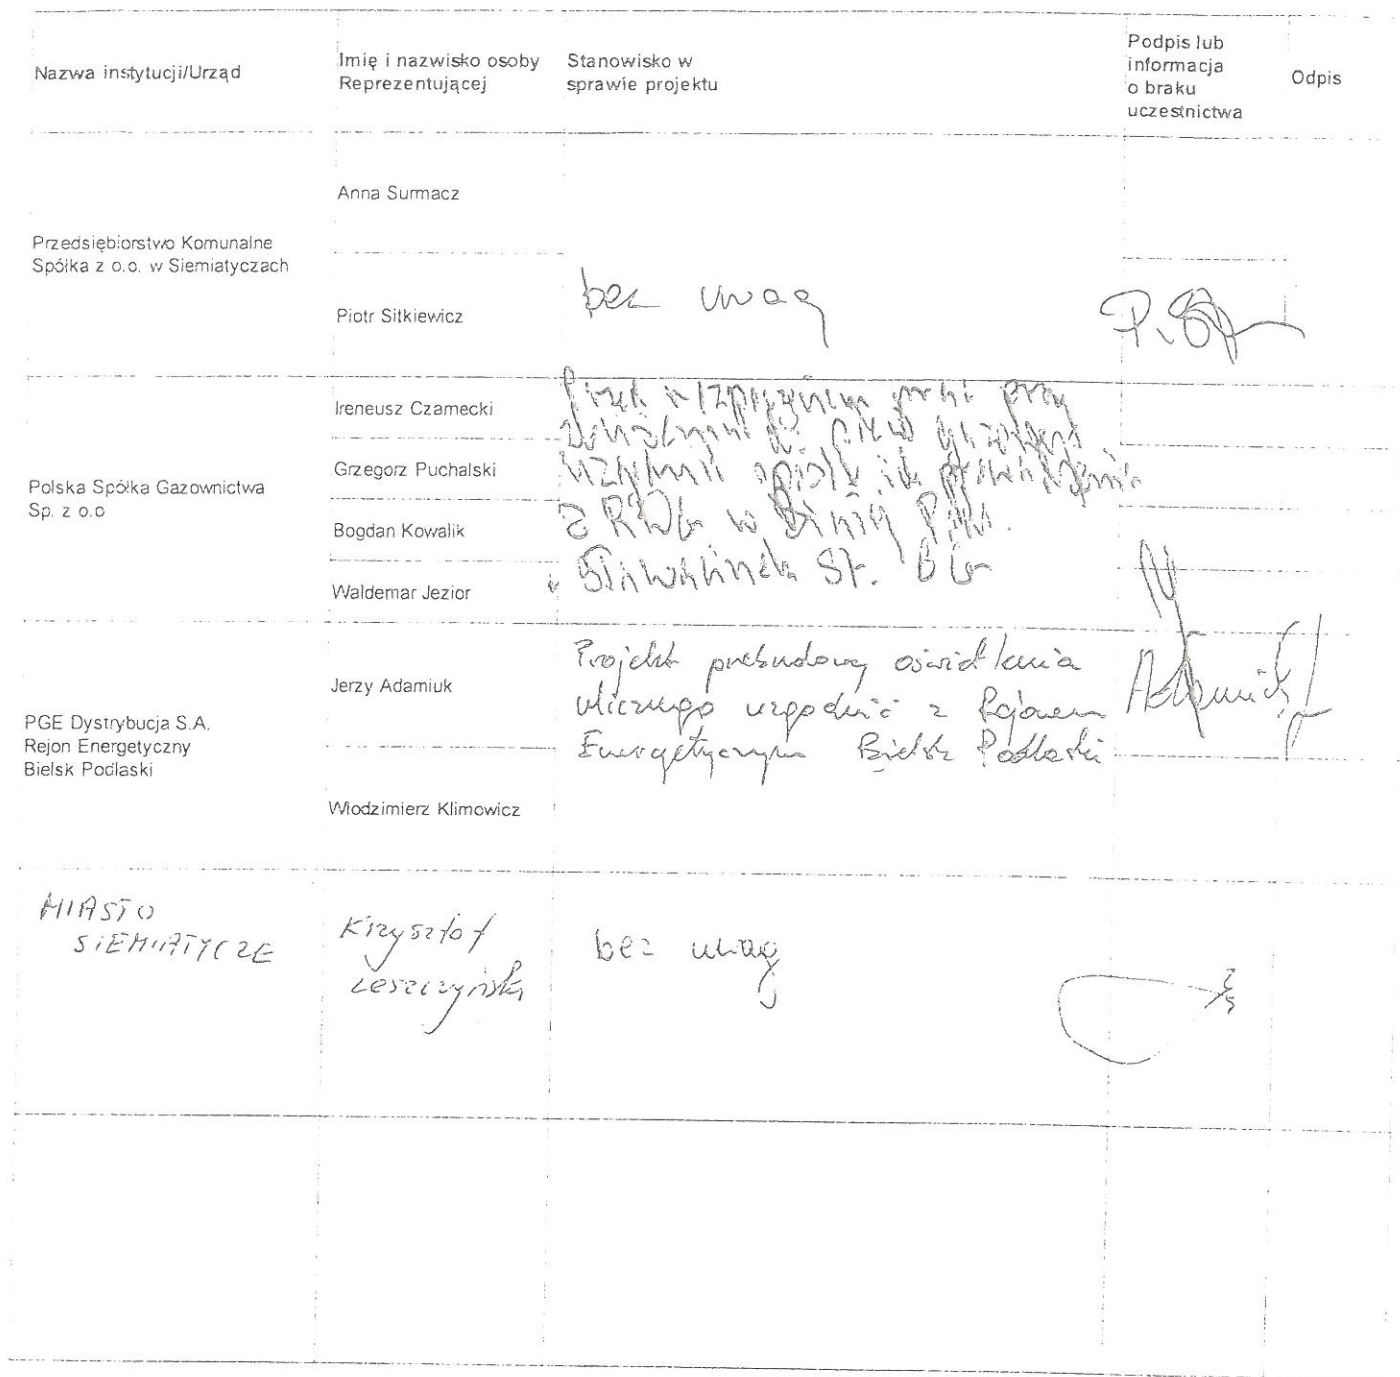 Nazwa instytucji/Urząd
Imię i nazwisko osoby
Reprezentującej
Stanowisko w
sprawie projektu
Podpis lub
informacja
o braku
uczestnictwa
Odpis
Przedsiębiorstwo Komunalne
Spółka z o.o. w Siemiatyczach
Anna Surmacz
Piotr Sitkiewicz
bez uwag
Polska Spółka Gazownictwa
Sp. z o.o
Ireneusz Czarnecki
Grzegorz Puchalski
Bogdan Kowalik
Waldemar Jezior
Przed
z w
St.
PGE Dystrybucja S.A.
Rejon Energetyczny
Bielsk Podlaski
Jerzy Adamiuk
Włodzimierz Klimowicz
Projekt przebudowy oświetlenia
ulicznego uzgodnić z Rejonem
Energetycznym Bielsk Podlaski
Adamiuk
MIASTO
SIEMIATYCZE
Krzysztof
Leszczyński
bez uwag